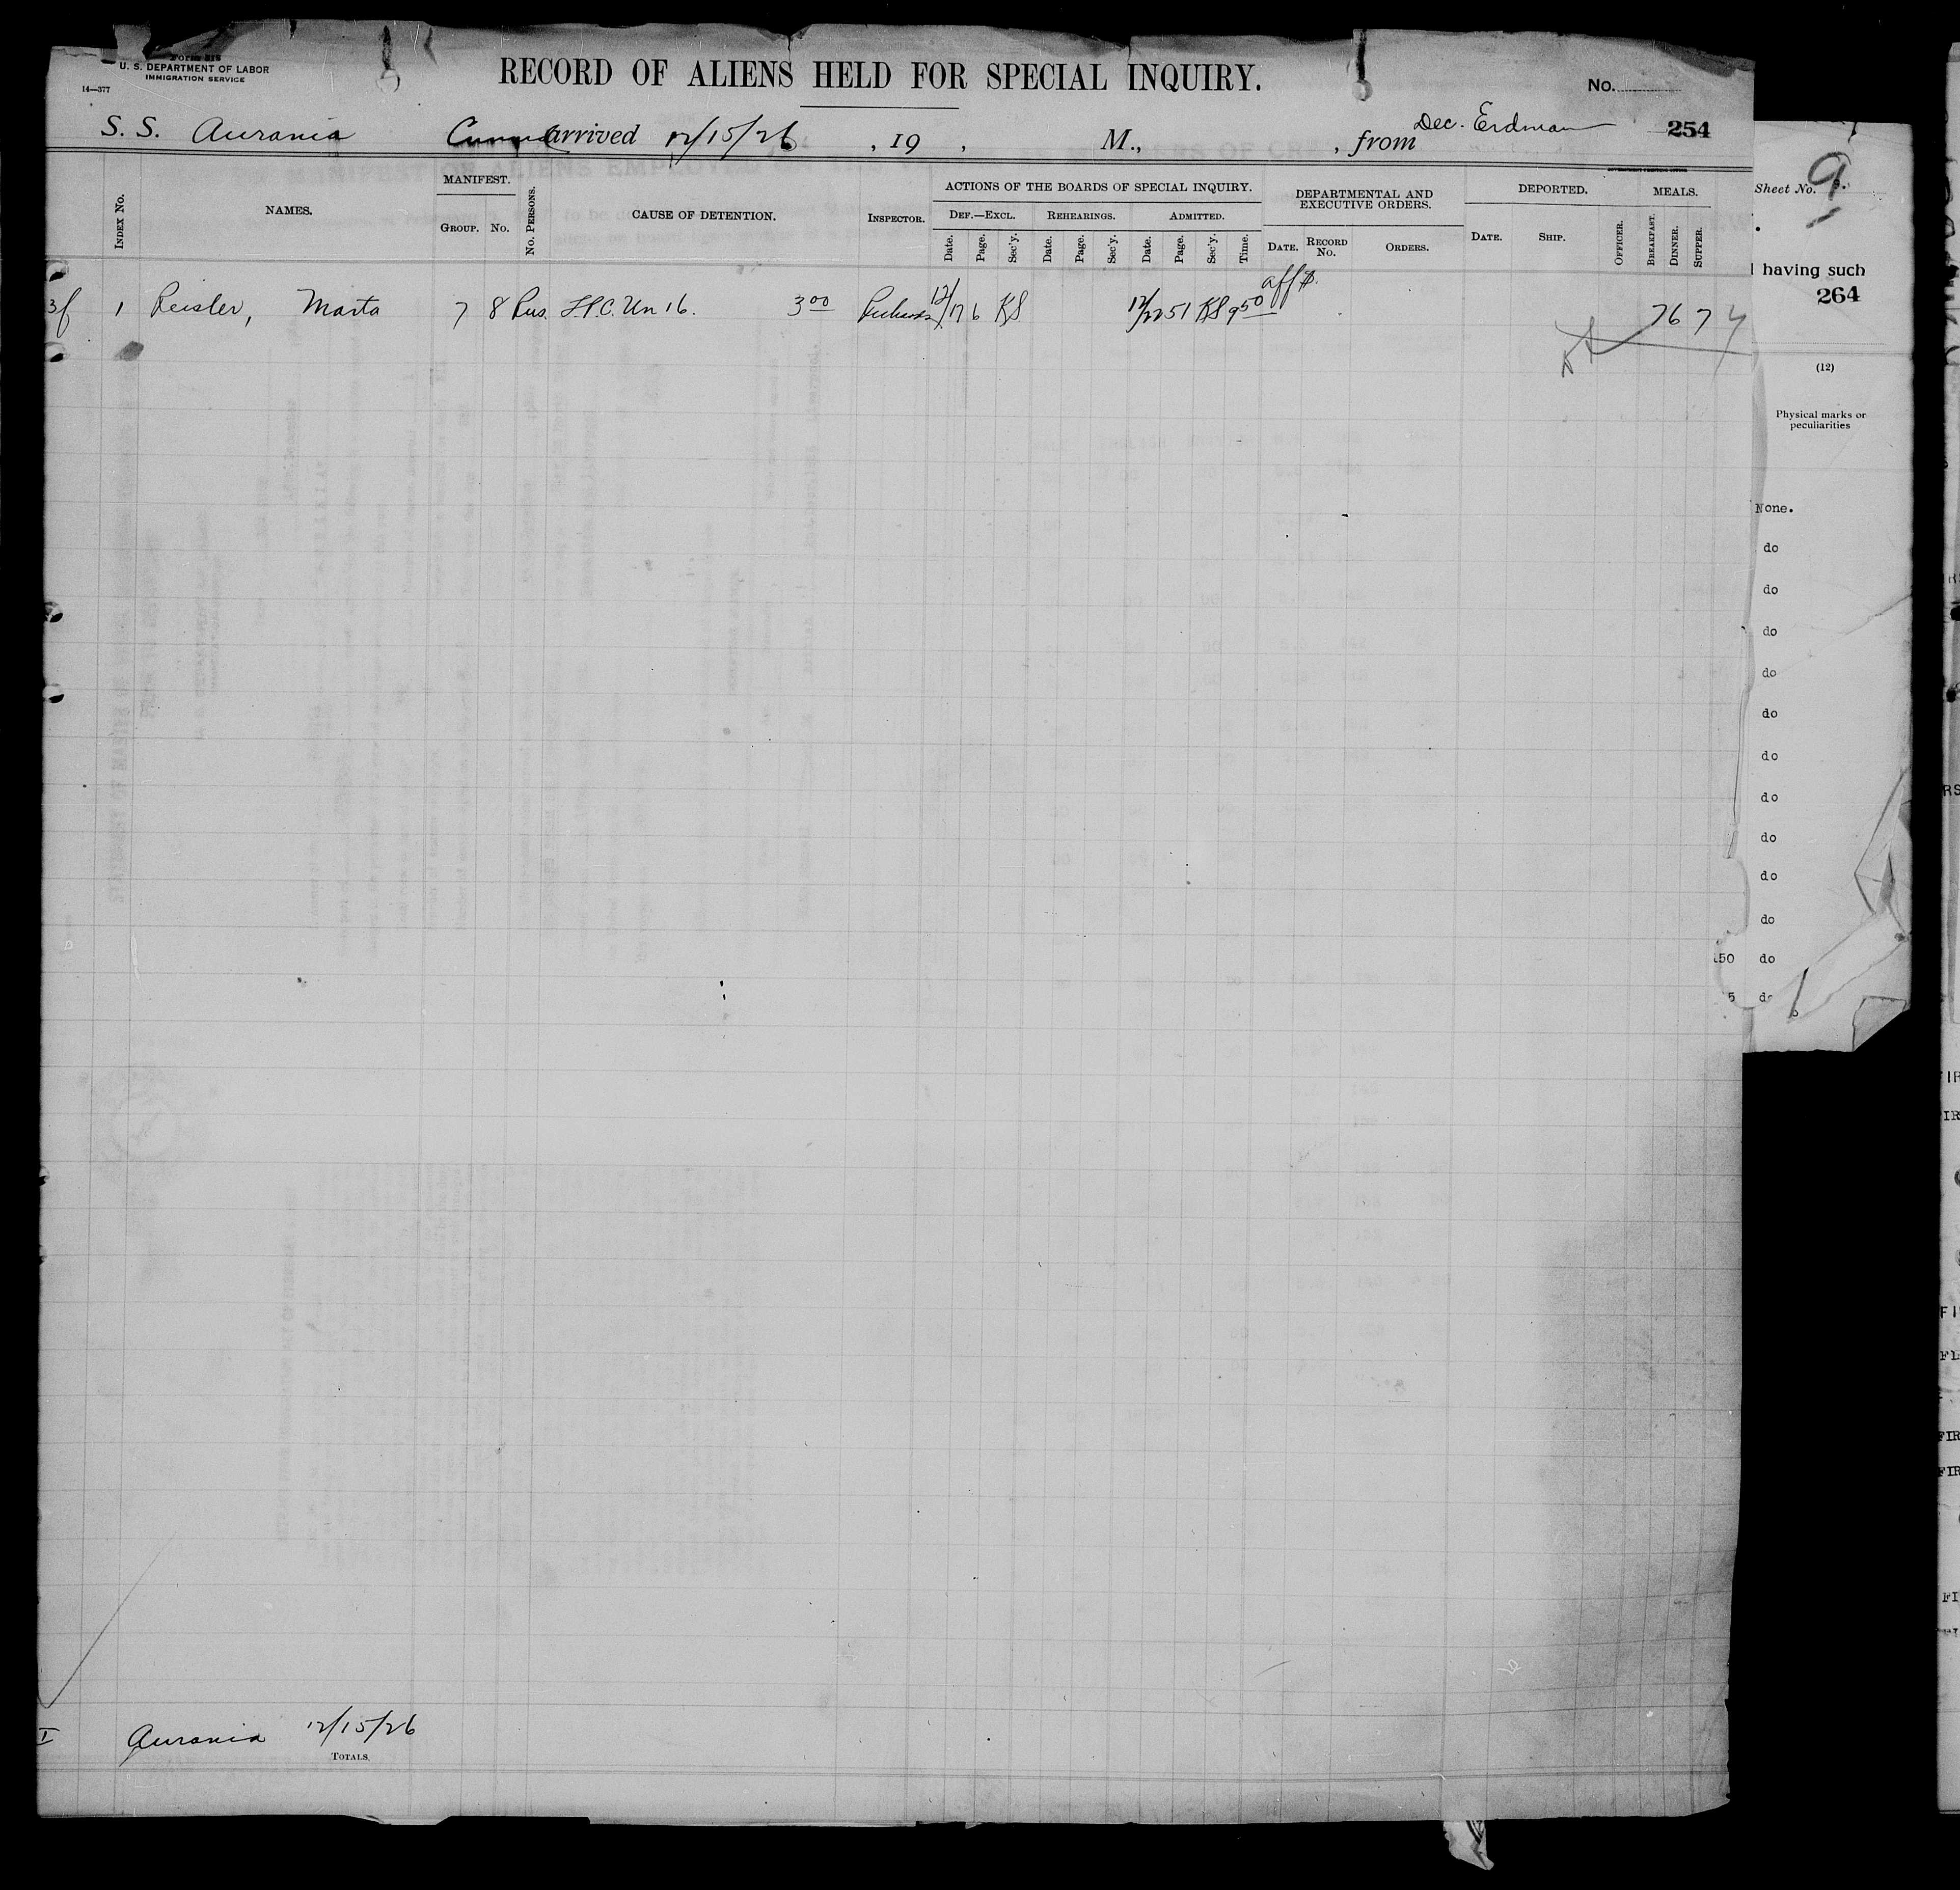 Form 518
U. S. DEPARTMENT OF LABOR
IMMIGRATION SERVICE
14—377
RECORD OF ALIENS HELD FOR SPECIAL INQUIRY.
No.
S. S. Aurania arrived 12/15/26, 19 , M., , from Dec. Erdman 254
INDEX No.
NAMES.
MANIFEST.
GROUP. No.
No. PERSONS.
CAUSE OF DETENTION.
INSPECTOR.
ACTIONS OF THE BOARDS OF SPECIAL INQUIRY.
DEF.—EXCL. REHEARINGS. ADMITTED.
Date. Page. Sec'y. Date. Page. Sec'y. Date. Page. Sec'y. Time.
DEPARTMENTAL AND
EXECUTIVE ORDERS.
DATE. RECORD No. ORDERS.
DEPORTED.
DATE. SHIP. OFFICER.
MEALS.
BREAKFAST. DINNER. SUPPER.
aff $.
3f 1 Reisler, Marta 7 8 Rus. L.P.C. Un 16. 3 00 12/17 6 KS 12/22 51 KS 9 50 7 6 7
I Aurania 12/15/26
TOTALS.
Sheet No. 9
having such
264
(12)
Physical marks or
peculiarities
None.
do
do
do
do
do
do
do
do
do
do
50 do
5